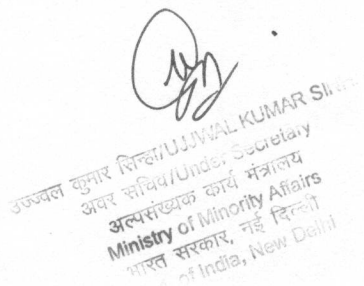 उज्ज्वल कुमार सिन्हा/UJJWAL KUMAR SIN
अवर सचिव/Under Secretary
अल्पसंख्यक कार्य मंत्रालय
Ministry of Minority Affairs
भारत सरकार, नई दिल्ली
of India, New Delhi